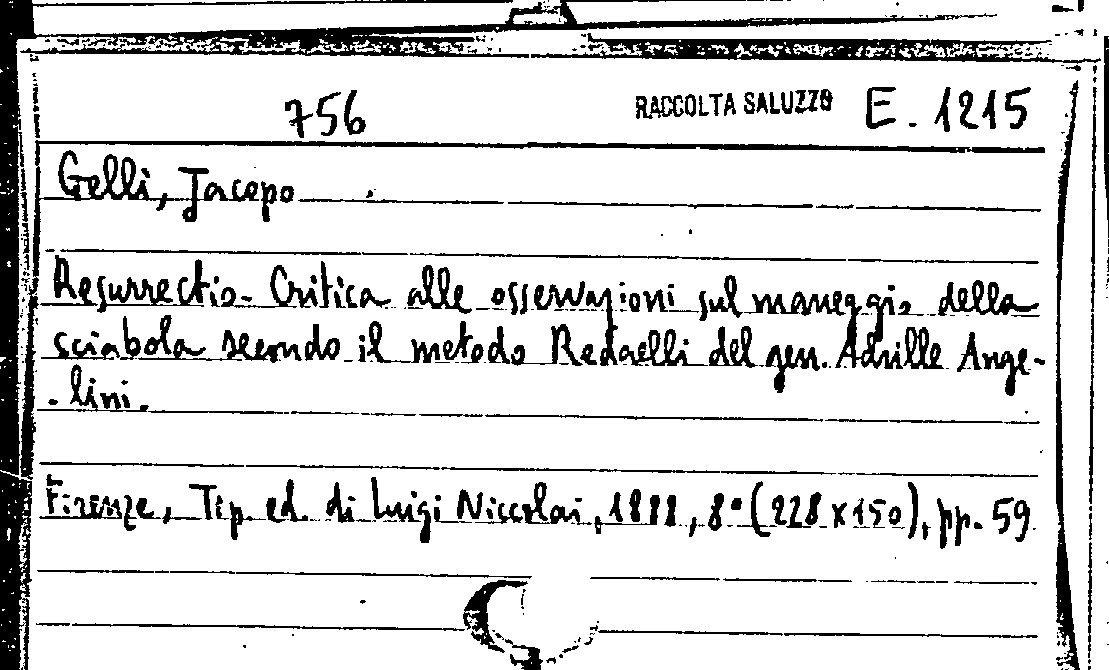 756 RACCOLTA SALUZZO E. 1215
Gelli, Jacopo
Resurrectio - Critica alle osservazioni sul maneggio della
sciabola secondo il metodo Redaelli del gen. Achille Ange-
- lini.
Firenze, Tip. ed. di Luigi Niccolai, 1888, 8° (228 x 150), pp. 59